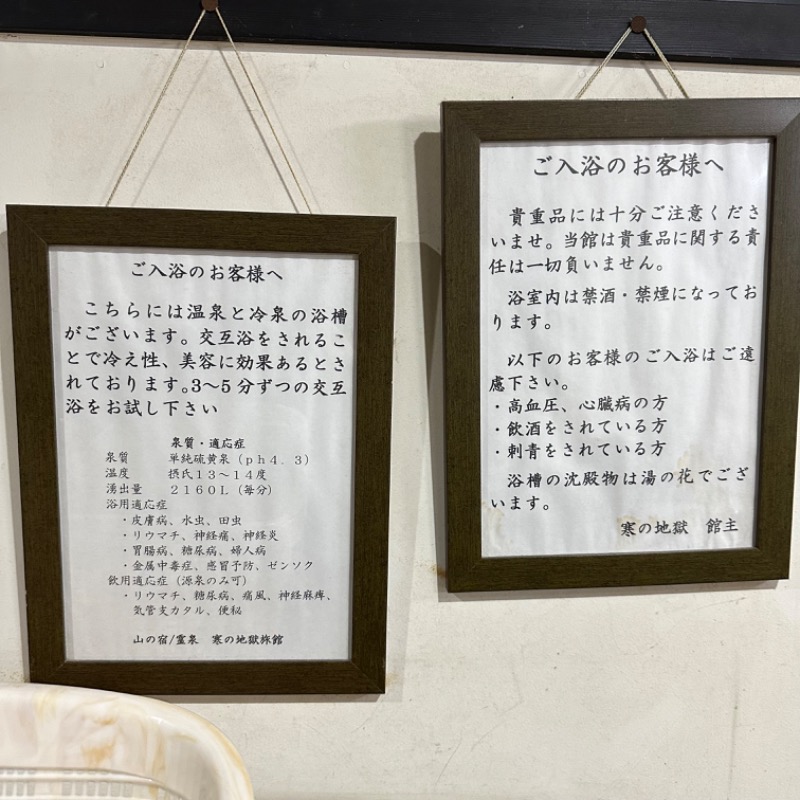 ご入浴のお客様へ
こちらには温泉と冷泉の浴槽
がございます。交互浴をされるこ
とで冷え性、美容に効果あるとさ
れております。3〜5分ずつの交互
浴をお試し下さい
泉質・適応症
泉質　単純硫黄泉（ph4．3）
温度　摂氏13〜14度
湧出量　2160L（毎分）
浴用適応症
・皮膚病、水虫、田虫
・リウマチ、神経痛、神経炎
・胃腸病、糖尿病、婦人病
・金属中毒症、感冒予防、ゼンソク
飲用適応症（源泉のみ可）
・リウマチ、糖尿病、痛風、神経麻痺、
気管支カタル、便秘
山の宿/霊泉　寒の地獄旅館
ご入浴のお客様へ
貴重品には十分ご注意くださ
いませ。当館は貴重品に関する責
任は一切負いません。
浴室内は禁酒・禁煙になってお
ります。
以下のお客様のご入浴はご遠
慮下さい。
・高血圧、心臓病の方
・飲酒をされている方
・刺青をされている方
浴槽の沈殿物は湯の花でござ
います。
寒の地獄　館主